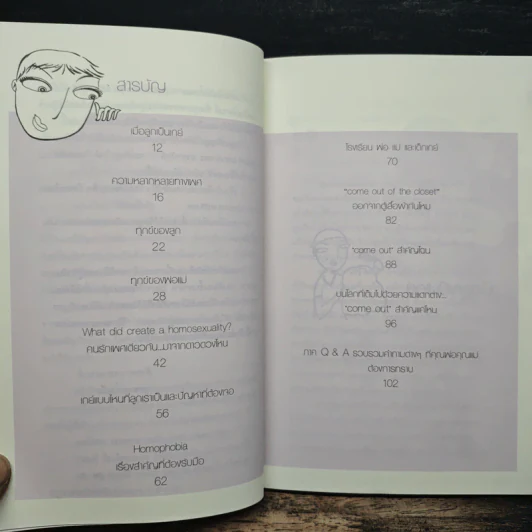 สารบัญ
เมื่อลูกเป็นเกย์
12
ความหลากหลายทางเพศ
16
ทุกข์ของลูก
22
ทุกข์ของพ่อแม่
28
What did create a homosexuality?
คนรักเพศเดียวกัน...มาจากดาวดวงไหน
42
เกย์แบบไหนที่ลูกเราเป็นและปัญหาที่ต้องเจอ
56
Homophobia
เรื่องสำคัญที่ต้องรับมือ
62
โรงเรียน พ่อ แม่ และเด็กเกย์
70
"come out of the closet"
ออกจากตู้เสื้อผ้ากันไหม
82
"come out" สำคัญไฉน
88
บนโลกที่เต็มไปด้วยความแตกต่าง...
"come out" สำคัญแค่ไหน
96
ภาค Q & A รวบรวมคำถามต่างๆ ที่คุณพ่อคุณแม่
ต้องการทราบ
102